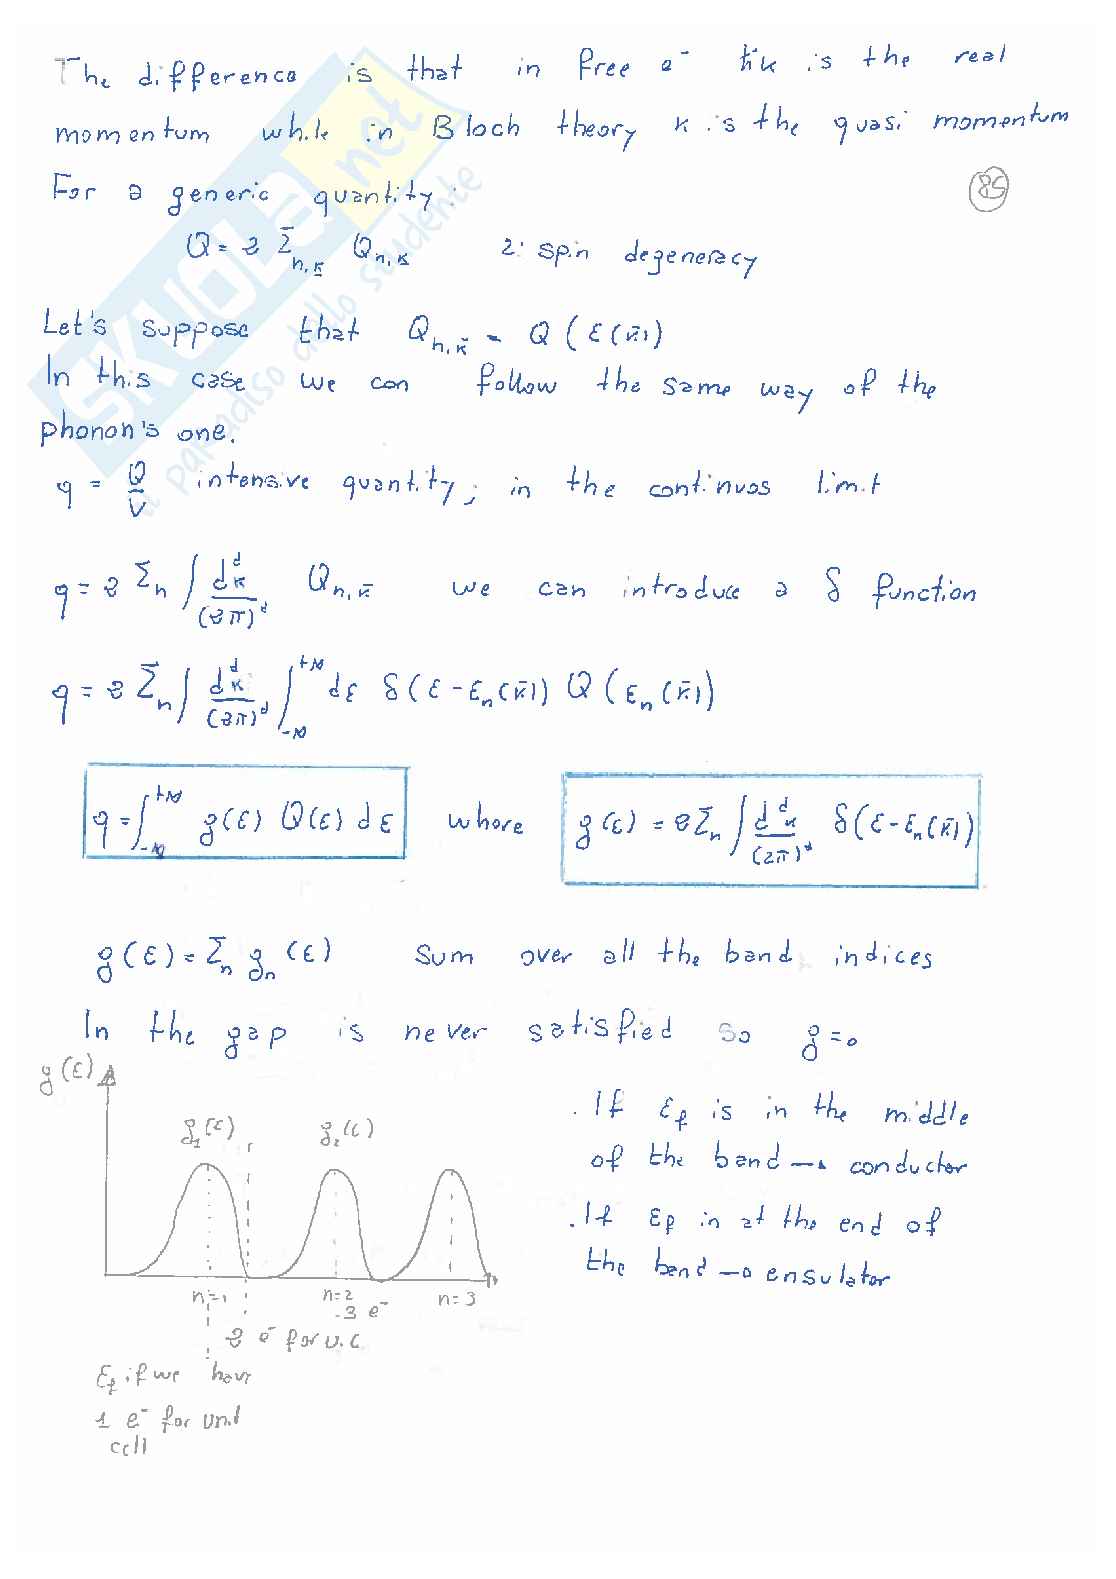 The difference is that in free e⁻ ħk is the real
momentum while in Bloch theory k is the quasi momentum
For a generic quantity:
85
Q = 2 Σ_{n,k} Q_{n,k} 2: spin degeneracy
Let's suppose that Q_{n,k̄} = Q(ε(k̄))
In this case we can follow the same way of the
phonon's one.
q = Q/V intensive quantity; in the continuos limit
q = 2 Σ_n ∫ d^d k/(2π)^d Q_{n,k̄} we can introduce a δ function
q = 2 Σ_n ∫ d^d k̄/(2π)^d ∫_{-∞}^{+∞} dε δ(ε - ε_n(k̄)) Q(ε_n(k̄))
q = ∫_{-∞}^{+∞} g(ε) Q(ε) dε where g(ε) = 2 Σ_n ∫ d^d k/(2π)^d δ(ε - ε_n(k̄))
g(ε) = Σ_n g_n(ε) sum over all the band indices
In the gap is never satisfied so g=0
g(ε)
g₁(ε) g₂(ε)
n=1 n=2 n=3
3 e⁻
2 e⁻ for u.c.
ε_f if we have
1 e⁻ for unit
cell
. If ε_f is in the middle
of the band → conductor
. If ε_f in at the end of
the band → ensulator
SKUOLA.net
il paradiso dello studente